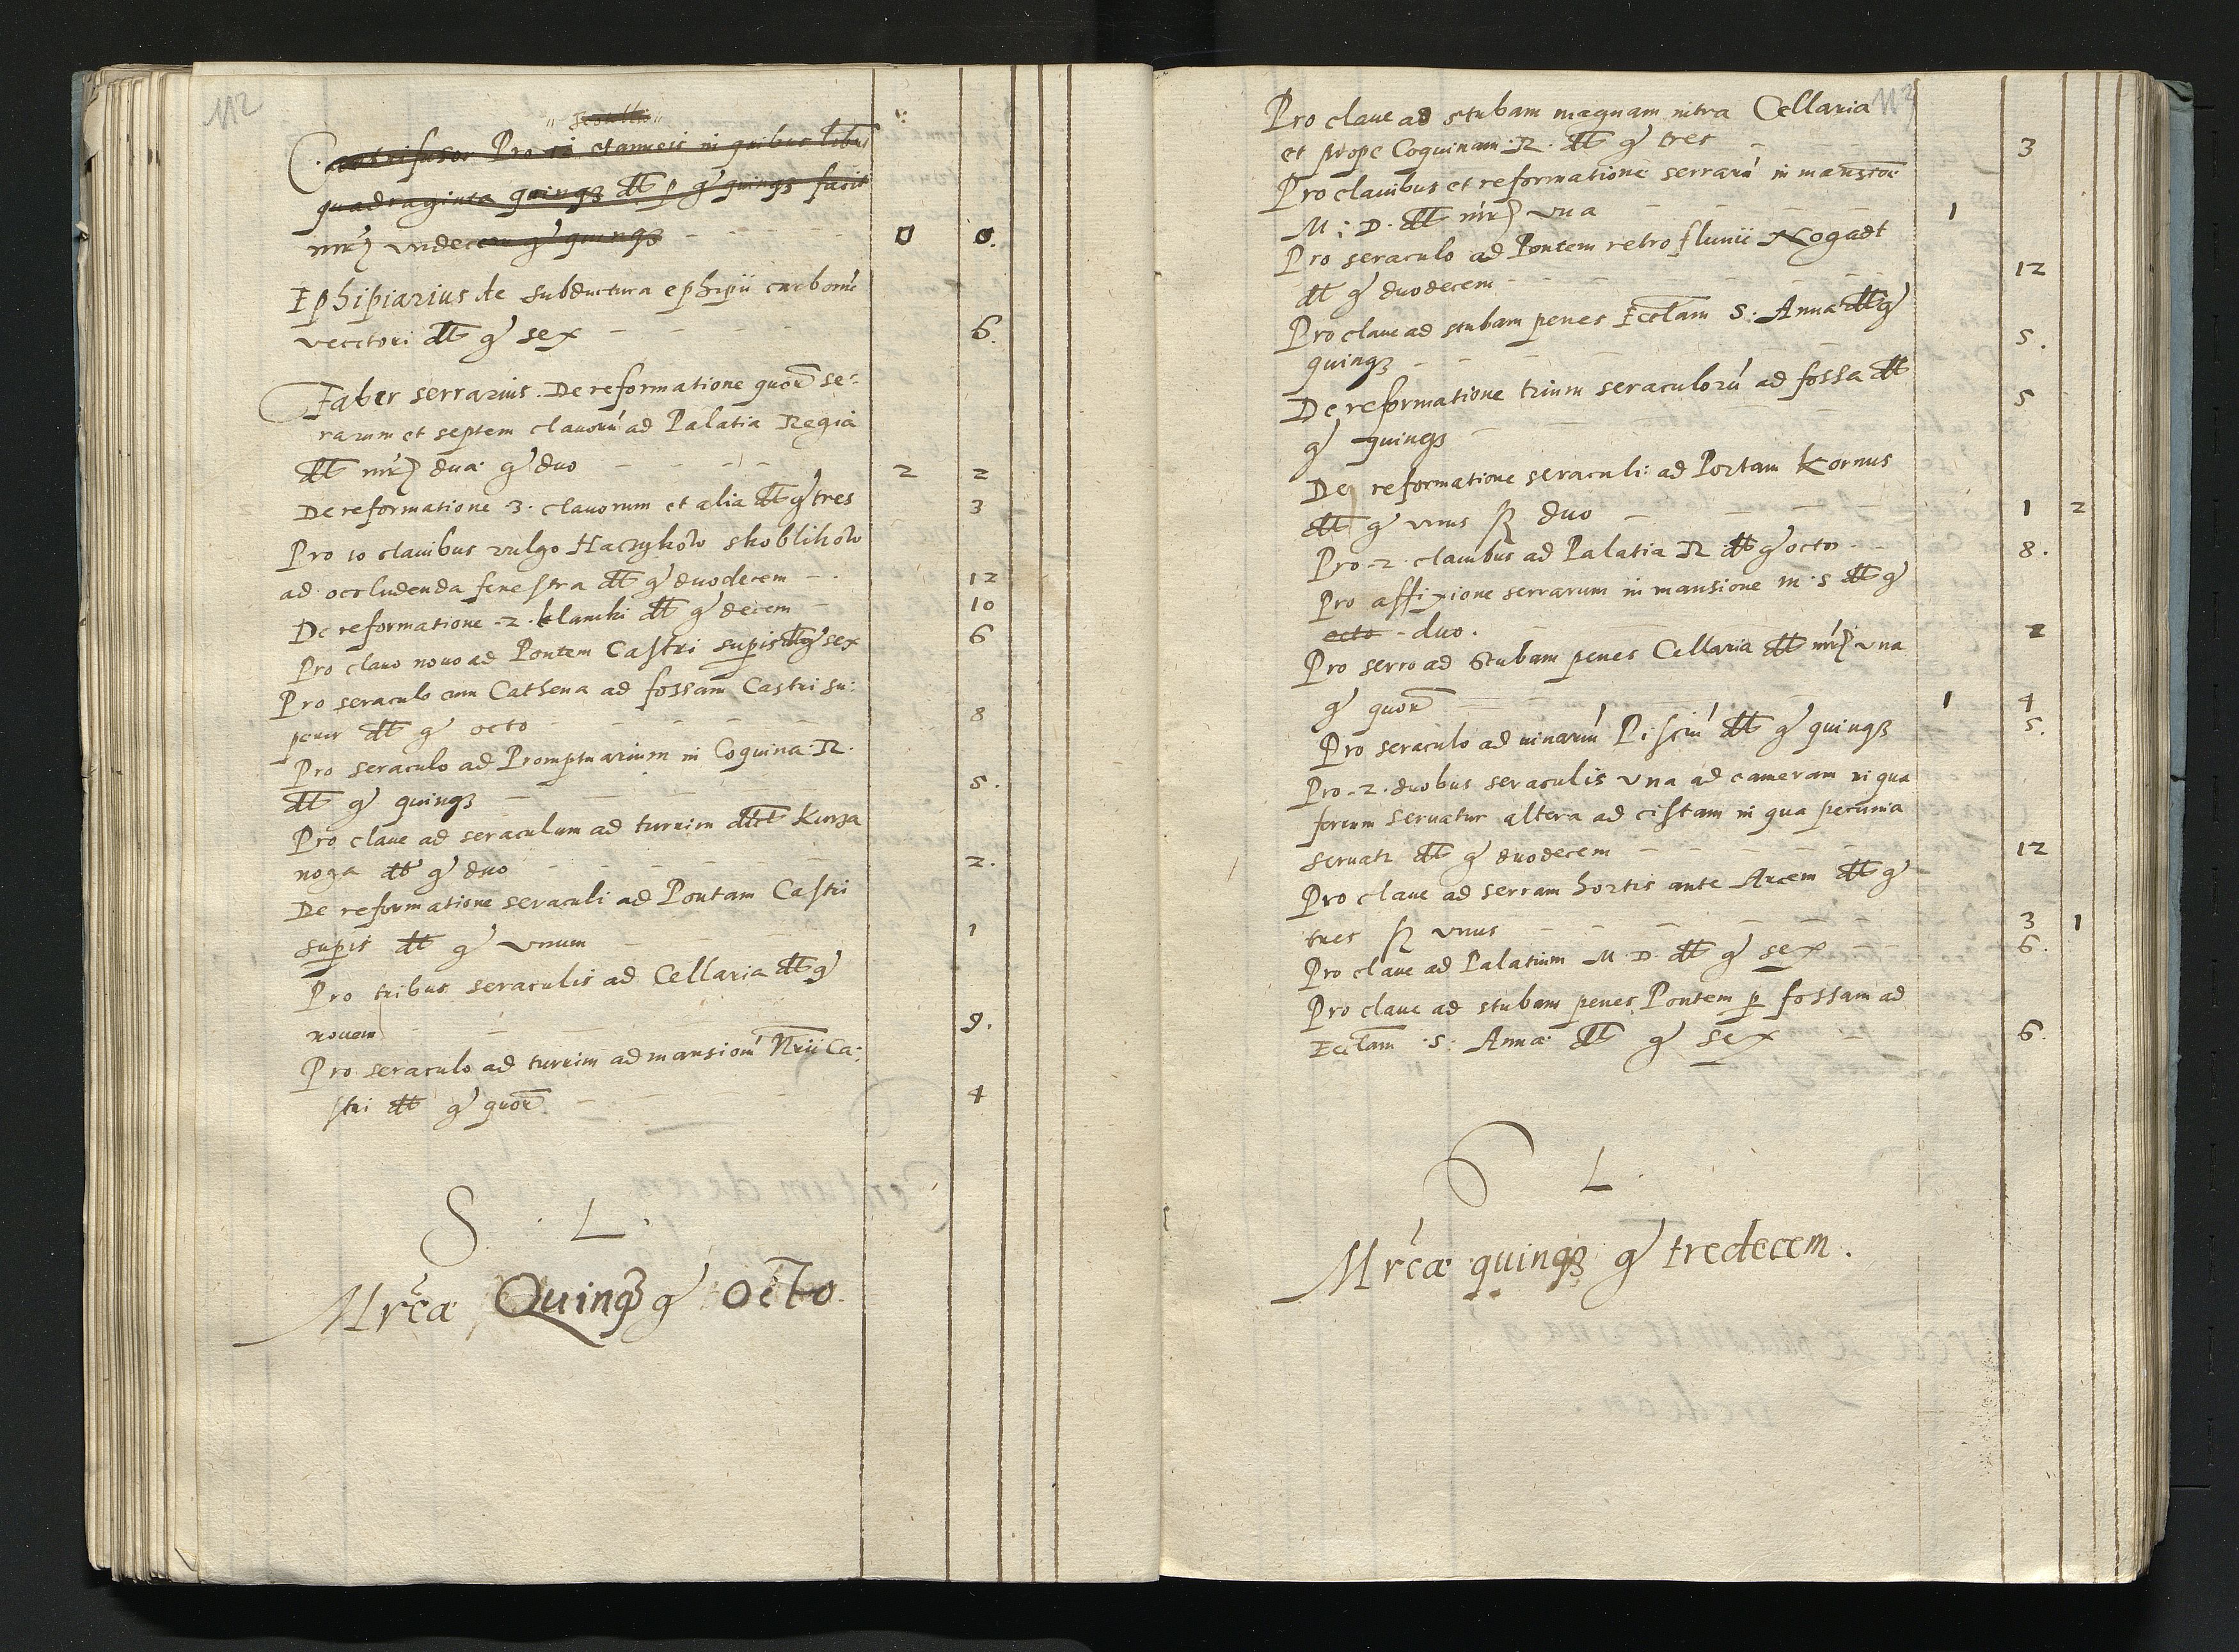 112
Pro 12 stanneis in quibus libris
quadraginta quinqȝ dt p gr quinqȝ facit
mrc vndecem gr quinqȝ 0 0.
Ephipiarius de subductura ephipii carbonu
vectori dt gr sex 6.
Faber serrarius. De reformatione quor se:
rarum et septem clauoru ad Palatia Regia
dt mrc dua gr duo 2 2
De reformatione 3. clauorum et alia dt gr tres 3
Pro 10 clauibus vulgo Haczykow skoblikow
ad occludenda fenestra dt gr duodecem 12
De reformatione 2. klamki dt gr decem 10
Pro clauo nouo ad Pontem Castri supis dt gr sex 6
Pro seraculo cum Cathena ad fossam Castri su:
perir dt gr octo 8
Pro seraculo ad Promptuarium in Coquina R.
dt gr quinqȝ 5.
Pro claue ad seraculum ad turrim dict Kurza
noga dt gr duo 2.
De reformatione seraculi ad Portam Castri
supis dt gr vnum 1
Pro tribus seraculis ad Cellaria dt gr
nouem 9.
Pro seraculo ad turrim ad mansionu Nrii Ca:
stri dt gr quor 4
S. L.
Mrcæ Quinqȝ gr octo.
113
Pro claue ad stubam magnam intra Cellaria
et prope Coquinam R. dt gr tres 3
Pro clauibus et reformatione serraru in mansioe
M: D. dt mrc vna 1
Pro seraculo ad Pontem retro fluuii Nogadt
dt gr duodecem 12
Pro claue ad stubam penes Ecclam S: Anna dt gr
quinqȝ 5.
De reformatione trium seraculoru ad fossa dt
gr quinqȝ 5
De reformatione seraculi ad Portam Kornus
dt gr vnus ß duo 1 2
Pro 2. clauibus ad Palatia R dt gr octo 8.
Pro affixione serrarum in mansione M. S dt gr
octo duo. 2
Pro serro ad Stubam penes Cellaria dt mrc vna
gr quor 1 4
Pro seraculo ad uinariu Pisciu dt gr quinqȝ 5.
Pro 2. duobus seraculis vna ad cameram in qua
ferrum seruatur altera ad cistam in qua pecunia
seruatr dt gr duodecem 12
Pro claue ad serram hortis ante Arcem dt gr
tres ß vnus 3 1
Pro claue ad Palatium M. D. dt gr sex 6.
Pro claue ad stubam penes Pontem p fossam ad
Ecclam S: Anna dt gr sex 6.
S L.
Mrcæ quinqȝ gr tredecem.